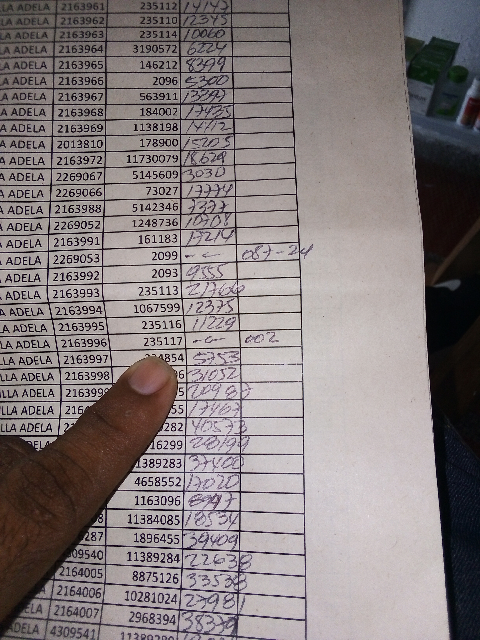 LLA ADELA 2163961 235112 14147
LA ADELA 2163962 235110 12345
LA ADELA 2163963 235114 10060
LA ADELA 2163964 3190572 6224
LA ADELA 2163965 146212 8399
LA ADELA 2163966 2096 5300
LA ADELA 2163967 563911
LA ADELA 2163968 184002 17435
LA ADELA 2163969 1138198 14412
LA ADELA 2013810 178900 15205
LA ADELA 2163972 11730079 18629
A ADELA 2269067 5145609 3030
A ADELA 2269066 73027 17774
A ADELA 2163988 5142346 7377
A ADELA 2269052 1248736 10708
A ADELA 2163991 161183 17214
A ADELA 2269053 2099 087-24
A ADELA 2163992 2093 9555
A ADELA 2163993 235113 21766
A ADELA 2163994 1067599 12375
LA ADELA 2163995 235116 11229
LA ADELA 2163996 235117 002
LA ADELA 2163997 4854 5753
LLA ADELA 2163998 6 31052
LLA ADELA 216399 20987
LLA ADELA 2164 55 17467
LLA ADELA 282 40573
ADELA 16299 28199
1389283 37400
4658552 17020
1163096
8 11384085 18534
287 1896455 39409
09540 11389284 22638
2164005 8875126 33538
2164006 10281024 27981
ADELA 2164007 2968394 38379
ADELA 4309541